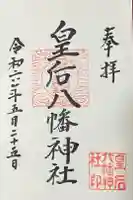 奉拝
皇后八幡神社
令和六年五月二十五日
皇后
八幡神
社印